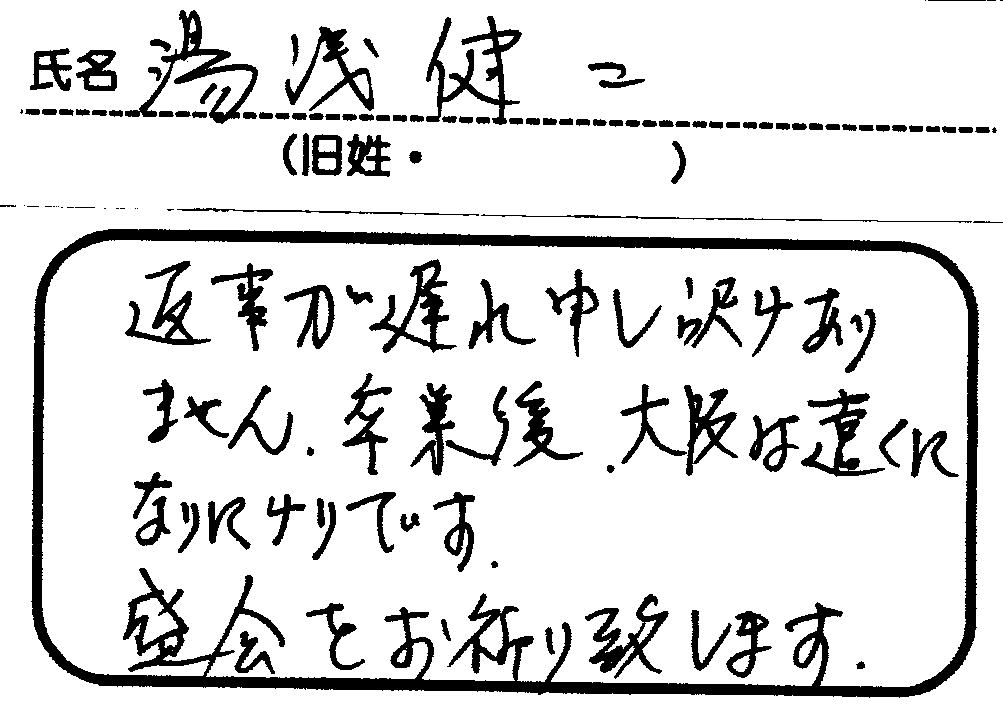 氏名 湯浅健二
(旧姓・　　　)
返事が遅れ申し訳けあり
ません.卒業後.大阪は遠くに
なりにけりです.
盛会をお祈り致します.